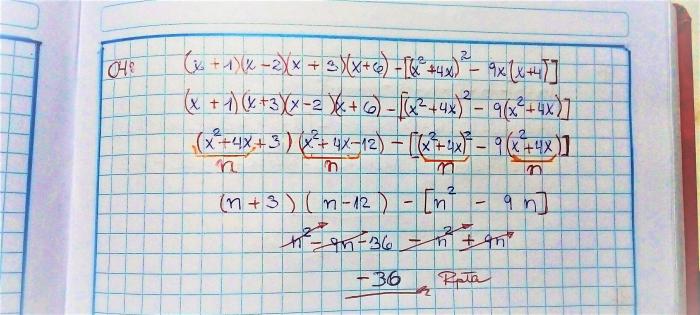 04. (x + 1)(x - 2)(x + 3)(x + 6) - [(x² + 4x)² - 9x(x + 4)]
(x + 1)(x + 3)(x - 2)(x + 6) - [(x² + 4x)² - 9(x² + 4x)]
(x² + 4x + 3)(x² + 4x - 12) - [(x² + 4x)² - 9(x² + 4x)]
n n n n
(n + 3)(n - 12) - [n² - 9n]
n² - 9n - 36 - n² + 9n
-36 Rpta